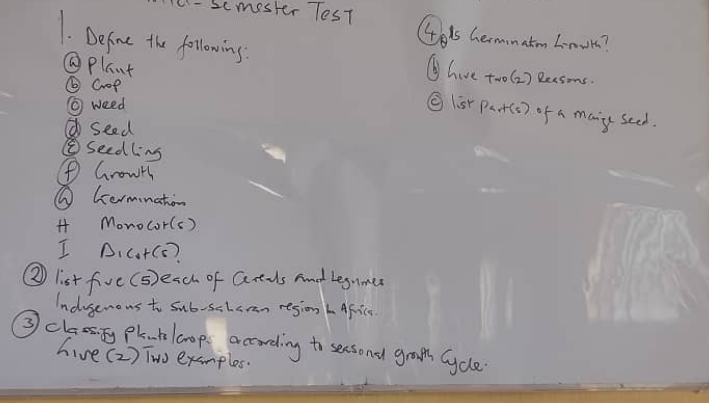 Semester Test
1. Define the following:
(a) Plant
(b) Crop
(c) Weed
(d) Seed
(E) Seedling
(f) Growth
(G) Germination
H Monocot(s)
I Dicot(s)
(2) list five (5) each of Cereals and Legumes
Indigenous to Sub-saharan region in Africa.
(3) classify plants/crops according to seasonal growth Cycle.
Give (2) Two examples.
(4) a Is Germination Growth?
(b) Give two (2) Reasons.
(c) list Part(s) of a maize seed.